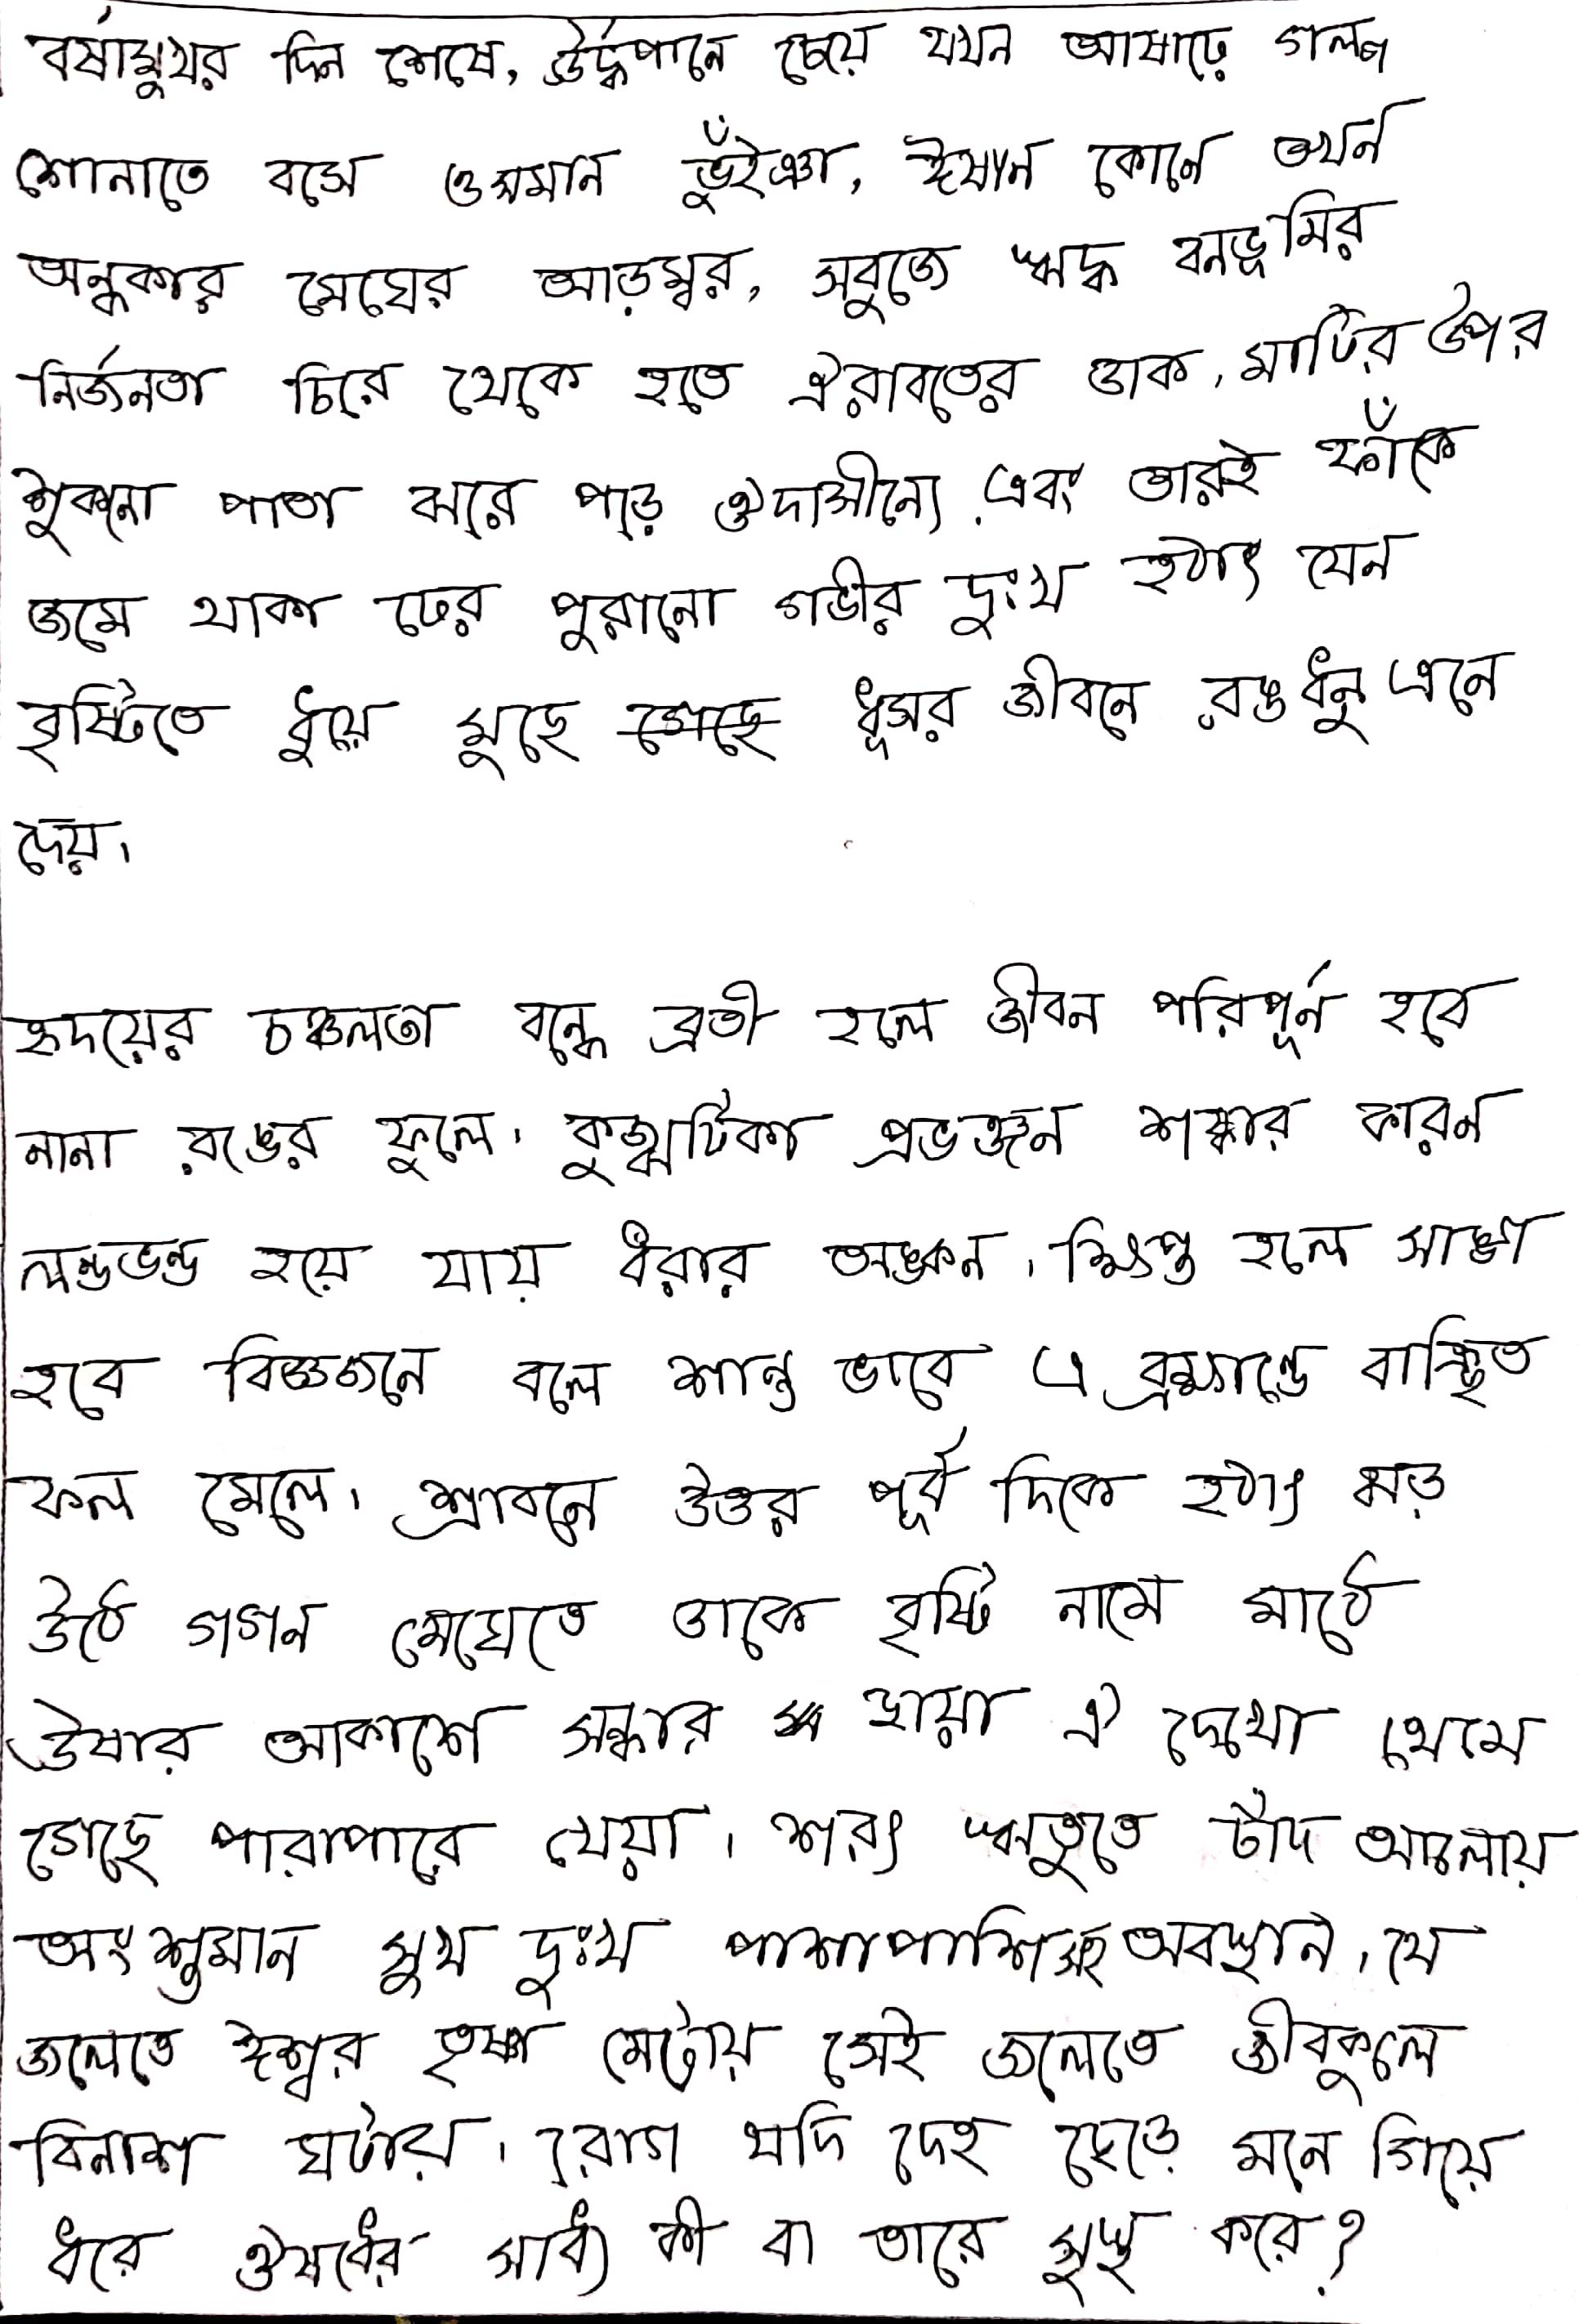 বর্ষামুখর দিন শেষে, ঊর্দ্ধপানে চেয়ে যখন আষাঢ়ে গল্প
শোনাতে বসে ওসমান ভুঁইঞা, ঈষান কোনে তখন
অন্ধকার মেঘের আড়ম্বর, সবুজে ঋদ্ধ বনভূমির
নির্জনতা চিরে থেকে হতে ঐরাবতের ডাক, মাটির উপর
শুকনো পাতা ঝরে পড়ে ঔদাসীন্যে এবং তারই ফাঁকে
জমে থাকা ঢের পুরানো গভীর দুঃখ হঠাৎ যেন
বৃষ্টিতে ধুয়ে মুছে ধূসর জীবনে রঙধনু এনে
দেয়।
হৃদয়ের চঞ্চলতা বন্ধে ব্রতী হলে জীবন পরিপূর্ন হবে
নানা রঙের ফুলে। কুজ্ঝটিকা প্রভঞ্জন শঙ্কার কারন
লন্ডভন্ড হয়ে যায় ধরার অঙ্কন। ক্ষিপ্ত হলে সাঙ্গা
হবে বিজ্ঞজনে বলে শান্ত ভাবে এ ব্রহ্মান্ডে বাঞ্ছিত
ফল মেলে। শ্রাবনে উত্তর পূর্ব দিকে হঠাৎ ঝড়
উঠে গগন মেঘেতে ঢাকে বৃষ্টি নামে মাঠে
ঊষার আকাশে সন্ধার ছায়া ঐ দেখো থেমে
গেছে পারাপারে খেয়া। শরৎ ঋতুতে চাঁদ আলোয়
অংশুমান সুখ দুঃখ পাশাপাশি সহ অবস্থান। যে
জলেতে ঈশ্বর তৃষ্ণা মেটায় সেই জলেতে জীবকুলে
বিনাশ ঘটায়। রোগ যদি দেহ ছেড়ে মনে গিয়ে
ধরে ঔষধের সাধ্য কী বা তারে সুস্থ করে?